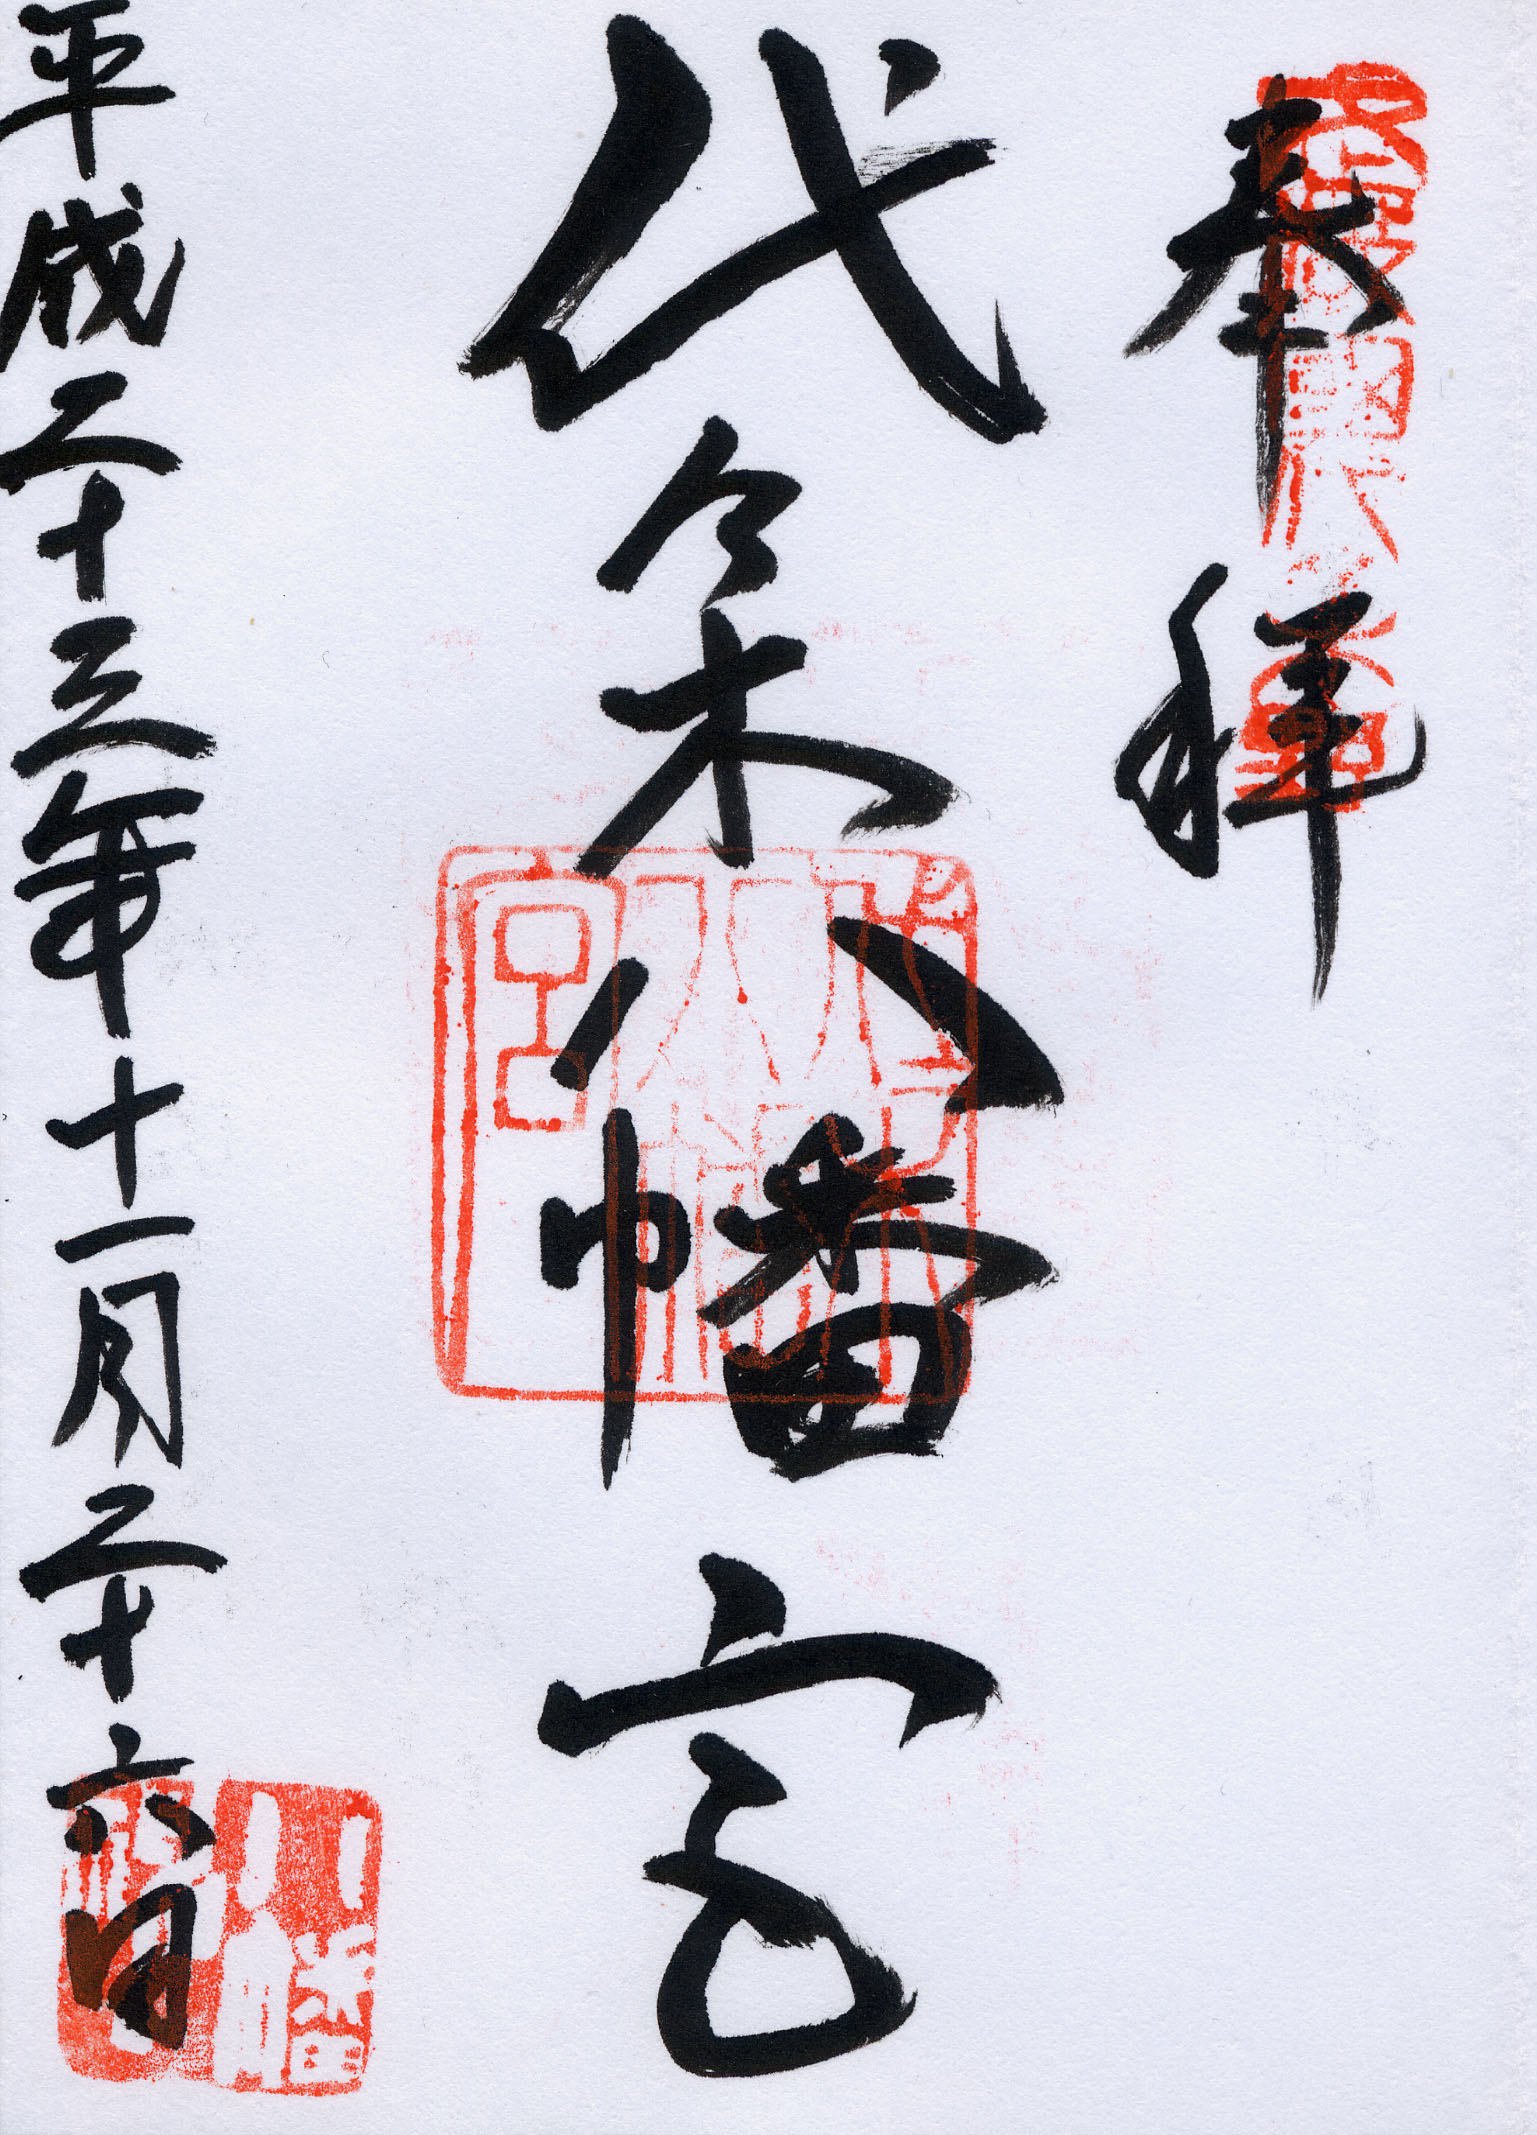 奉拝
代々木八幡宮
平成二十三年十一月二十六日